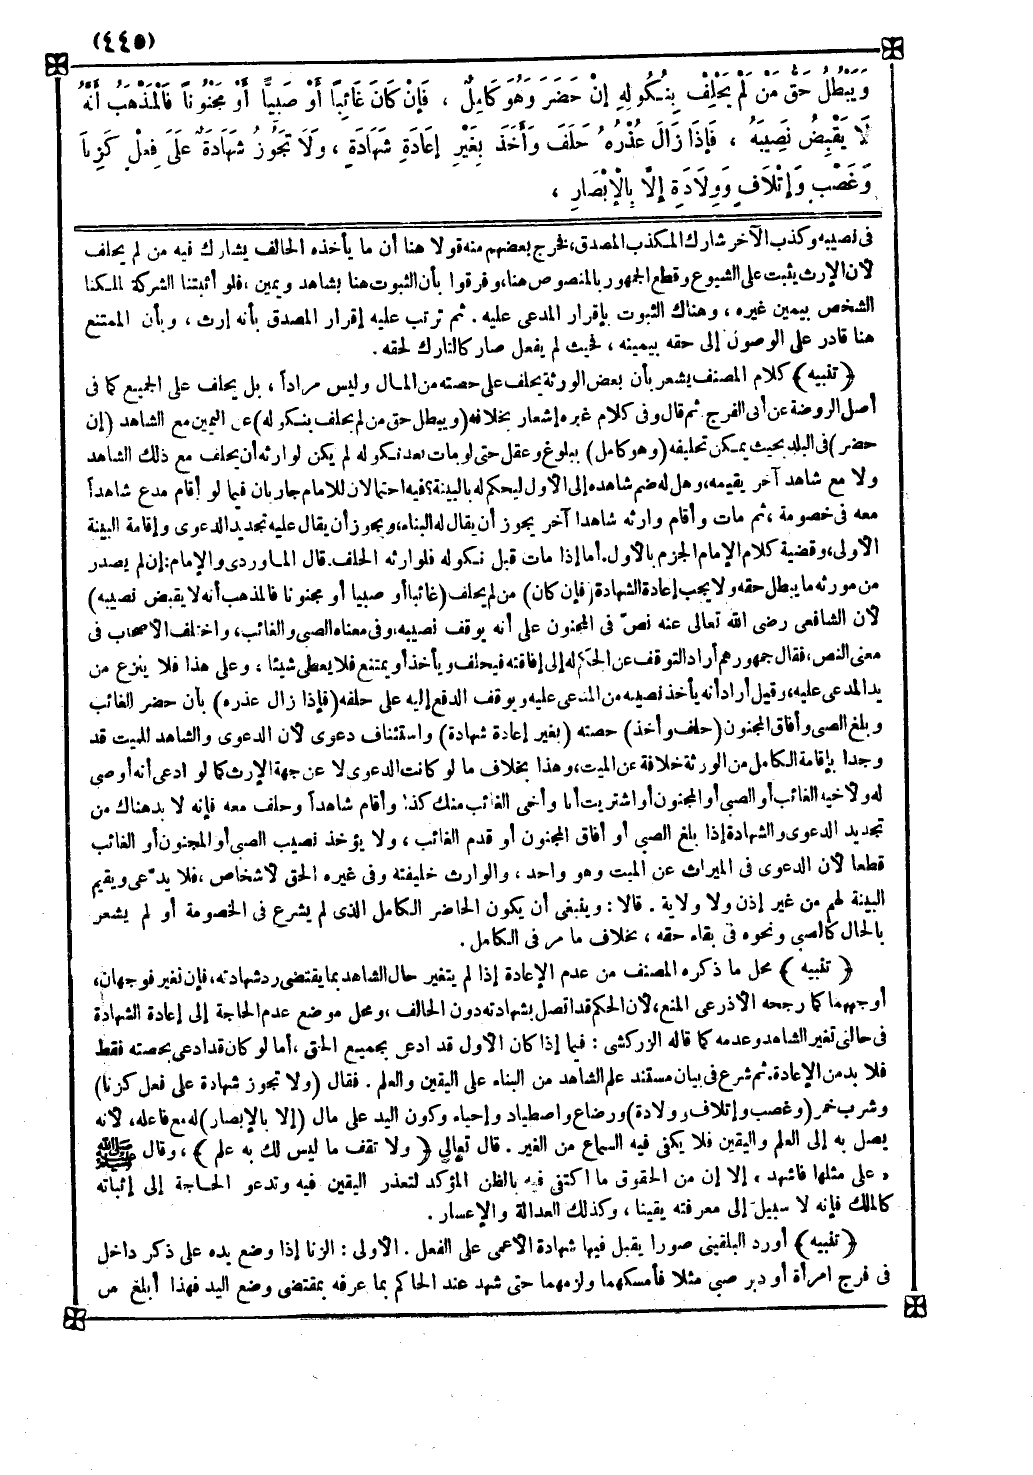 (٤٤٥)
وَيَبْطُلُ حَقُّ مَنْ لَمْ يَحْلِفْ بِنُكُولِهِ إِنْ حَضَرَ وَهُوَ كَامِلٌ ، فَإِنْ كَانَ غَائِبًا أَوْ صَبِيًّا أَوْ مَجْنُونًا فَالْمَذْهَبُ أَنَّهُ
لَا يَقْبِضُ نَصِيبَهُ ، فَإِذَا زَالَ عُذْرُهُ حَلَفَ وَأَخَذَ بِغَيْرِ إِعَادَةِ شَهَادَةٍ ، وَلَا تَجُوزُ شَهَادَةٌ عَلَى فِعْلٍ كَزِنًا
وَغَصْبٍ وَإِتْلَافٍ وَوِلَادَةٍ إِلَّا بِالْإِبْصَارِ ،
فى نصيبه وكذب الآخر شارك المكذب المصدق، فخرج بعضهم منه قولا هنا أن ما يأخذه الحالف يشارك فيه من لم يحلف
لأن الإرث يثبت على الشيوع وقطع الجمهور بالمنصوص هنا، وفرقوا بأن الثبوت هنا بشاهد ويمين ، فلو أثبتنا الشركة لملكنا
الشخص بيمين غيره ، وهناك الثبوت بإقرار المدعى عليه . ثم ترتب عليه إقرار المصدق بأنه إرث ، وبأن الممتنع
هنا قادر على الوصول إلى حقه بيمينه ، فحيث لم يفعل صار كالتارك لحقه .
﴿ تنبيه ﴾ كلام المصنف يشعر بأن بعض الورثة يحلف على حصته من المال وليس مراداً ، بل يحلف على الجميع كما فى
أصل الروضة عن أبى الفرج. ثم قال وفى كلام غيره إشعار بخلافه (ويبطل حق من لم يحلف بنكوله) عن اليمين مع الشاهد (إن
حضر) فى البلد بحيث يمكن تحليفه (وهو كامل) ببلوغ وعقل حتى لو مات بعد نكوله لم يكن لوارثه أن يحلف مع ذلك الشاهد
ولا مع شاهد آخر يقيمه، وهل له ضم شاهده إلى الأول ليحكم له بالبينة؟ فيه احتمالان للإمام جاريان فيما لو أقام مدع شاهداً
معه فى خصومة ، ثم مات وأقام وارثه شاهدا آخر يجوز أن يقال له البناء، ويجوز أن يقال عليه تجديد الدعوى وإقامة البينة
الأولى، وقضية كلام الإمام الجزم بالأول. أما إذا مات قبل نكوله فلوارثه الحلف. قال الماوردى والإمام: إن لم يصدر
من مورثه ما يبطل حقه ولا يجب إعادة الشهادة (فإن كان) من لم يحلف (غائبا أو صبيا أو مجنونا فالمذهب أنه لا يقبض نصيبه)
لأن الشافعى رضى الله تعالى عنه نصّ فى المجنون على أنه يوقف نصيبه، وفى معناه الصبى والغائب، واختلف الأصحاب فى
معنى النص، فقال جمهورهم أراد التوقف عن الحكم له إلى إفاقته فيحلف ويأخذ أو يمتنع فلا يعطى شيئا ، وعلى هذا فلا ينزع من
يد المدعى عليه، وقيل أراد أنه يأخذ نصيبه من المدعى عليه ويوقف الدفع إليه على حلفه (فإذا زال عذره) بأن حضر الغائب
وبلغ الصبى وأفاق المجنون (حلف وأخذ) حصته (بغير إعادة شهادة) واستئناف دعوى لأن الدعوى والشاهد للميت قد
وجدا بإقامة الكامل من الورثة خلافة عن الميت، وهذا بخلاف ما لو كانت الدعوى لا عن جهة الإرث كما لو ادعى أنه أوصى
له ولأخيه الغائب أو الصبى أو المجنون أو اشتريت أنا وأخى الغائب منك كذا وأقام شاهداً وحلف معه فإنه لا بد هناك من
تجديد الدعوى والشهادة إذا بلغ الصبى أو أفاق المجنون أو قدم الغائب ، ولا يؤخذ نصيب الصبى أو المجنون أو الغائب
قطعا لأن الدعوى فى الميراث عن الميت وهو واحد ، والوارث خليفته وفى غيره الحق لأشخاص ، فلا يدعى ويقيم
البينة لهم من غير إذن ولا ولاية . قالا : وينبغى أن يكون الحاضر الكامل الذى لم يشرع فى الخصومة أو لم يشعر
بالحال كالصبى ونحوه فى بقاء حقه ، بخلاف ما مر فى الكامل .
﴿ تنبيه ﴾ محل ما ذكره المصنف من عدم الإعادة إذا لم يتغير حال الشاهد بما يقتضى رد شهادته، فإن تغير فوجهان،
أوجههما كما رجحه الأذرعى المنع، لأن الحكم قد اتصل بشهادته دون الحالف ، ومحل موضع عدم الحاجة إلى إعادة الشهادة
فى حالتى تغير الشاهد وعدمه كما قاله الزركشى : فيما إذا كان الأول قد ادعى بجميع الحق ، أما لو كان قد ادعى بحصته فقط
فلا بد من الإعادة. ثم شرع فى بيان مستند علم الشاهد من البناء على اليقين والعلم . فقال (ولا تجوز شهادة على فعل كزنا)
وشرب خمر (وغصب وإتلاف وولادة) ورضاع واصطياد وإحياء وكون اليد على مال (إلا بالإبصار) له مع فاعله، لأنه
يصل به إلى العلم واليقين فلا يكفى فيه السماع من الغير . قال تعالى ﴿ ولا تقف ما ليس لك به علم ﴾ ، وقال ﷺ
« على مثلها فاشهد » إلا إن من الحقوق ما اكتفى فيه بالظن المؤكد لتعذر اليقين فيه وتدعو الحاجة إلى إثباته
كالملك فإنه لا سبيل إلى معرفته يقينا ، وكذلك العدالة والإعسار .
﴿ تنبيه ﴾ أورد البلقينى صورا يقبل فيها شهادة الأعمى على الفعل . الأولى : الزنا إذا وضع يده على ذكر داخل
فى فرج امرأة أو دبر صبى مثلا فأمسكهما ولزمهما حتى شهد عند الحاكم بما عرفه بمقتضى وضع اليد فهذا أبلغ من